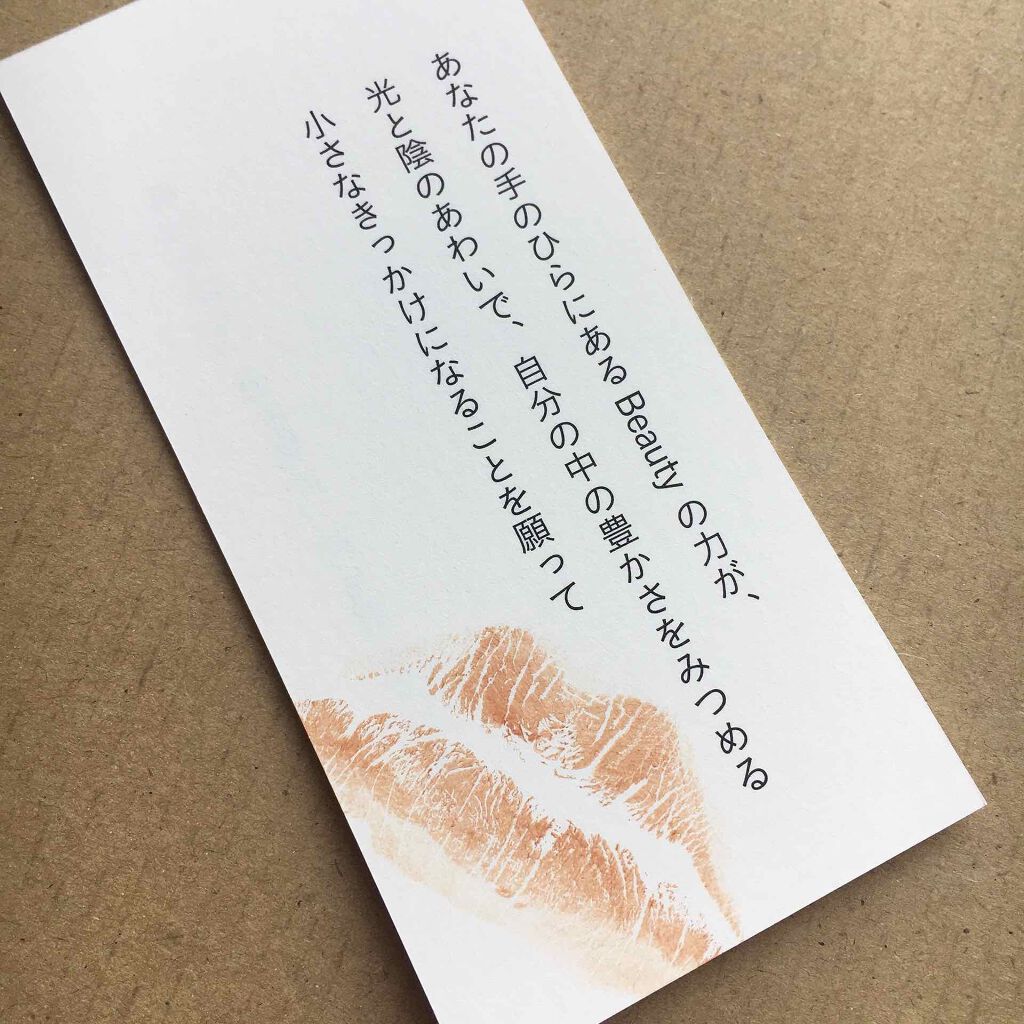 あなたの手のひらにある Beauty の力が、
光と陰のあわいで、自分の中の豊かさをみつめる
小さなきっかけになることを願って